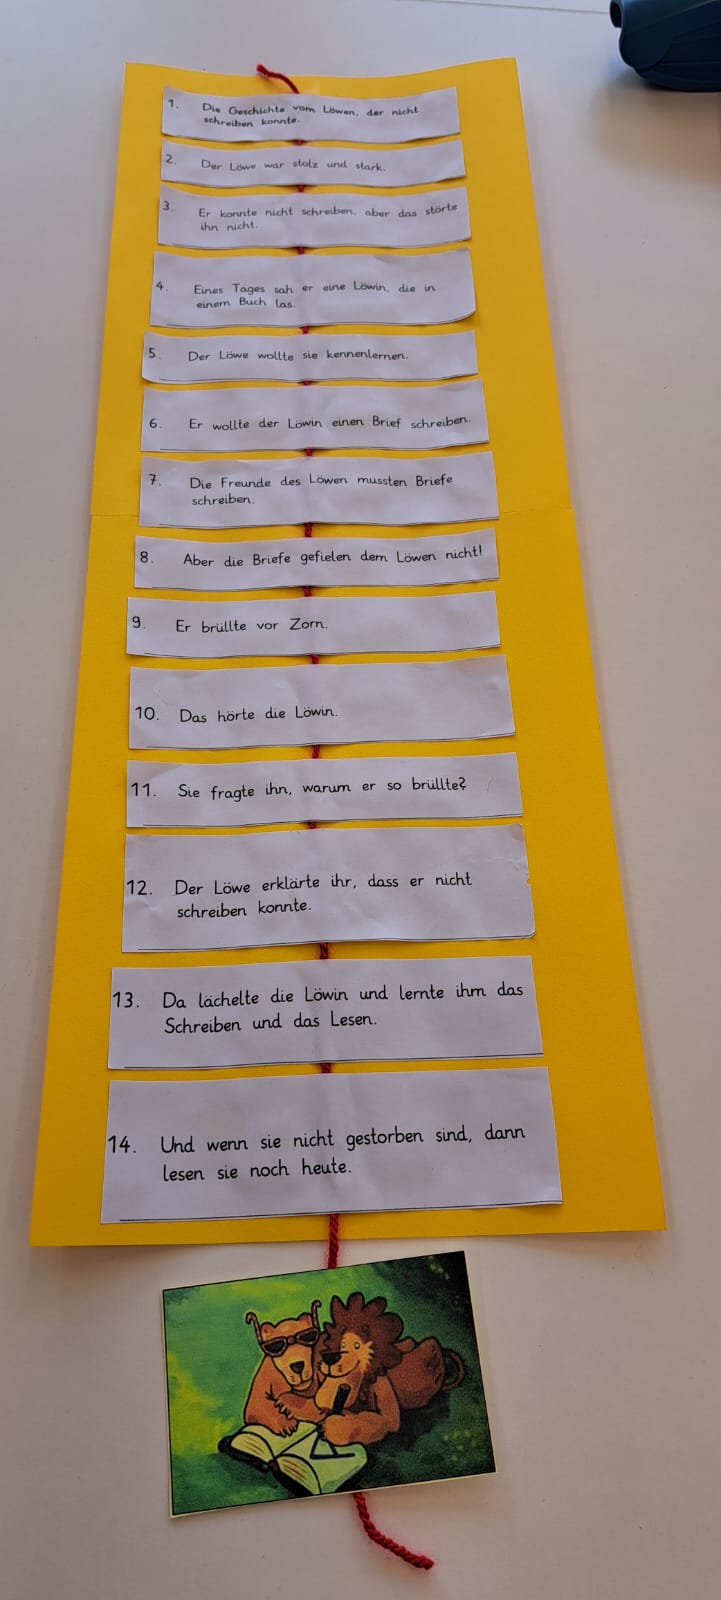 1. Die Geschichte vom Löwen, der nicht
schreiben konnte.
2. Der Löwe war stolz und stark.
3. Er konnte nicht schreiben, aber das störte
ihn nicht.
4. Eines Tages sah er eine Löwin, die in
einem Buch las.
5. Der Löwe wollte sie kennenlernen.
6. Er wollte der Löwin einen Brief schreiben.
7. Die Freunde des Löwen mussten Briefe
schreiben.
8. Aber die Briefe gefielen dem Löwen nicht!
9. Er brüllte vor Zorn.
10. Das hörte die Löwin.
11. Sie fragte ihn, warum er so brüllte?
12. Der Löwe erklärte ihr, dass er nicht
schreiben konnte.
13. Da lächelte die Löwin und lernte ihm das
Schreiben und das Lesen.
14. Und wenn sie nicht gestorben sind, dann
lesen sie noch heute.